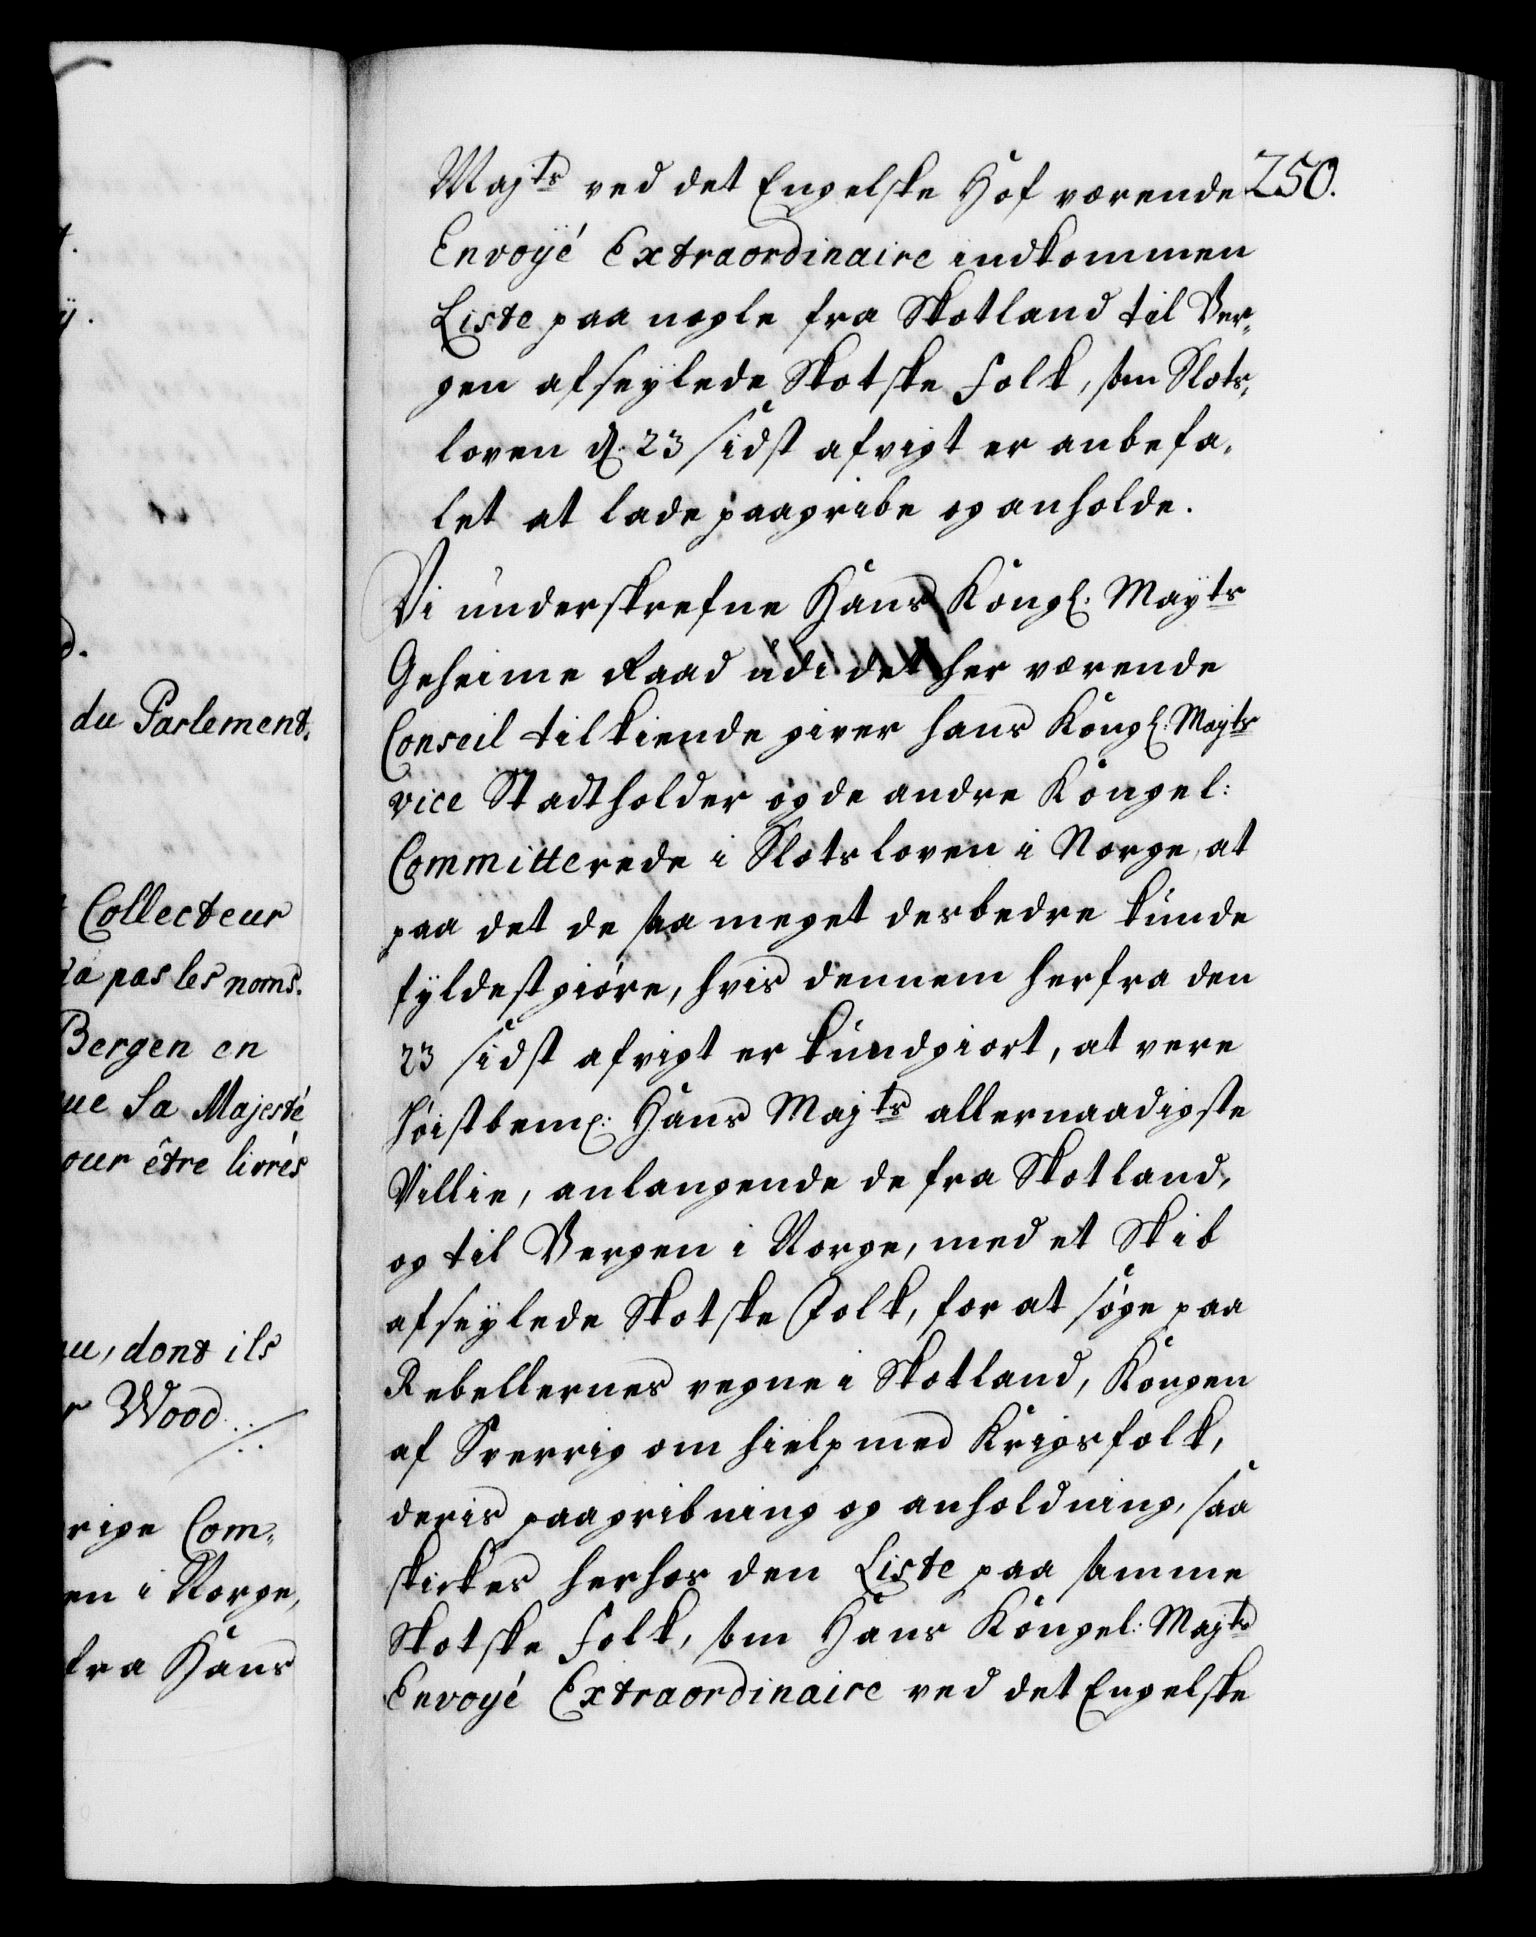 t.
ÿ.
d.
du Parlement.
t Collecteur
pas les noms.
Bergen en
que Sa Majesté
pour être livrés
dont ils
r Wood
Com-
en i Norge,
fra Hans
250.
Majts ved det Engelske Hof værende
Envoÿé Extraordinaire indkommen
Liste paa nogle fra Skotland til Ber-
gen afseÿlede Skotske Folk, som Slots-
loven d. 23 sidst afvigt er anbefa-
let at lade paagribe og anholde.
Vi underskrefne Hans Kongl. Mayts
Geheime Raad udi det her værende
Conseil tilkiende giver hans Kongl: Mayts
vice Stadtholder og de andre Kongel:
Committerede i Slotsloven i Norge, at
paa det de saa meget desbedre kunde
fÿldestgiøre, hvis dennem herfra den
23 sidst afvigt er kundgiort, at vere
høistbeml: Hans Majts allernaadigste
Villie, anlangende de fra Skotland,
og til Bergen i Norge, med et Skib
afseÿlede Skotske Folk, for at søge paa
Rebellernes vegne i Skotland, Kongen
af Sverrig om hielp med Krigsfolk,
deris paagribning og anholdning, saa
skickes herhos den Liste paa samme
Skotske Folk, som Hans Kongel: Majts
Envoyé Extraordinaire ved det Engelske